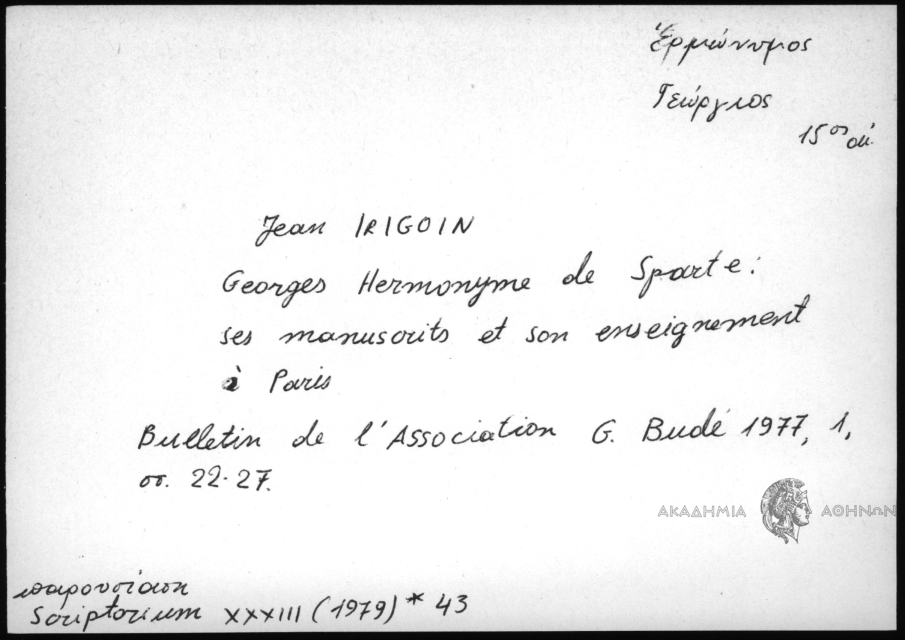 Ἑρμώνυμος
Γεώργιος
15ος αἰ.
Jean IRIGOIN
Georges Hermonyme de Sparte:
ses manuscrits et son enseignement
à Paris
Bulletin de l'Association G. Budé 1977, 1,
σσ. 22-27.
ΑΚΑΔΗΜΙΑ ΑΘΗΝΩΝ
παρουσίαση
Scriptorium XXXIII (1979) * 43